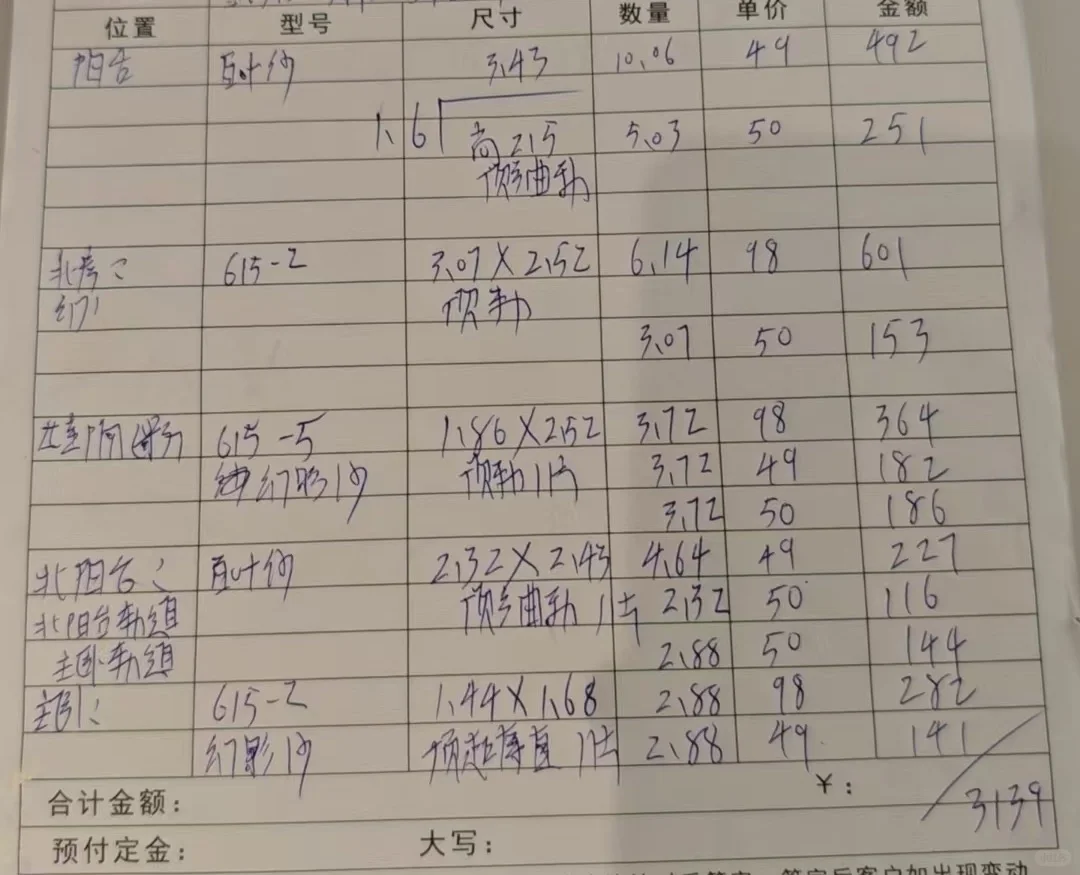 位置 型号 尺寸 数量 单价 金额
阳台 百叶纱 3.43 10.06 49 492
1.61 高2.15 5.03 50 251
顶弯曲轨
615-2 3.07×2.52 6.14 98 601
顶轨
3.07 50 153
615-5 1.86×2.52 3.72 98 364
幻影纱 顶轨 3.72 49 182
3.72 50 186
北阳台: 百叶纱 2.32×2.43 4.64 49 227
北阳台轨道 顶弯曲轨 2.32 50 116
主卧轨道 2.88 50 144
615-2 1.44×1.68 2.88 98 282
幻影纱 2.88 49 141
合计金额: ¥: 3139
预付定金: 大写: